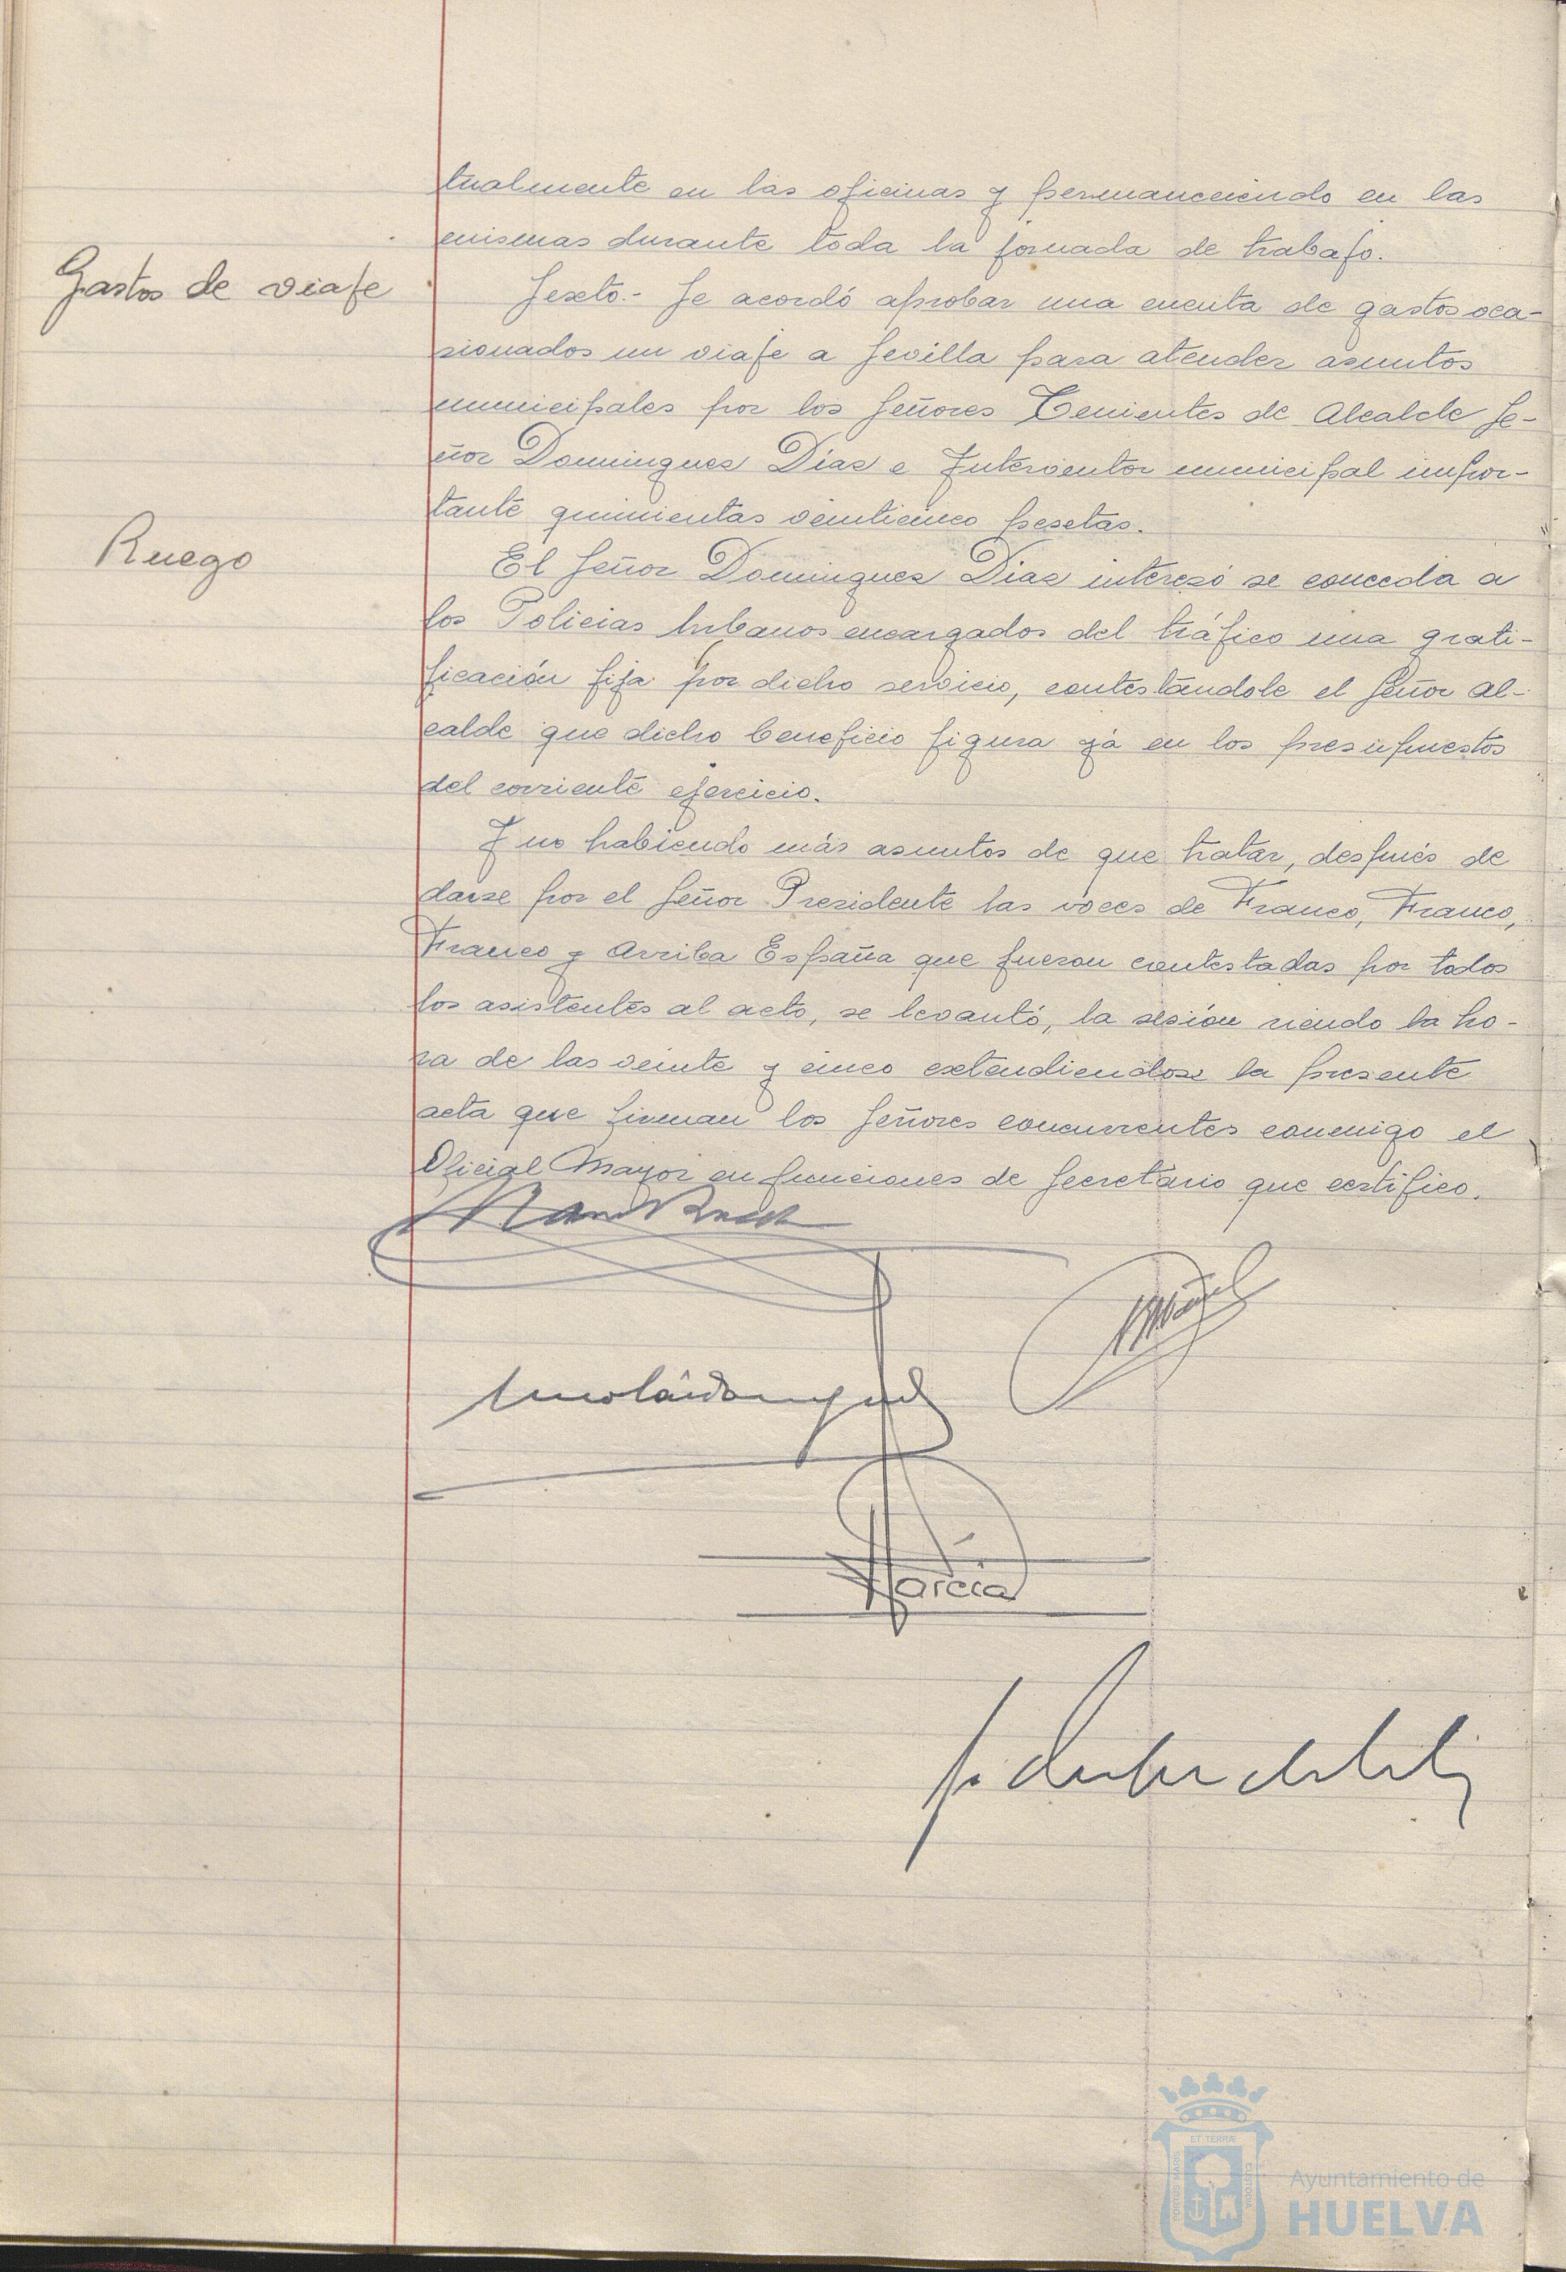 tualmente en las oficinas y permaneciendo en las
mismas durante toda la jornada de trabajo.
Gastos de viaje
Sexto.- Se acordó aprobar una cuenta de gastos oca-
sionados un viaje a Sevilla para atender asuntos
municipales por los Señores Tenientes de Alcalde Se-
ñor Domínguez Díaz e Interventor municipal impor-
tante quinientas veinticinco pesetas.
Ruego
El Señor Domínguez Díaz interesó se conceda a
los Policias Urbanos encargados del tráfico una grati-
ficación fija por dicho servicio, contestándole el Señor Al-
calde que dicho beneficio figura yá en los presupuestos
del corriente ejercicio.
Y no habiendo más asuntos de que tratar, después de
darse por el Señor Presidente las voces de Franco, Franco,
Franco y Arriba España que fueron contestadas por todos
los asistentes al acto, se levantó, la sesión siendo la ho-
ra de las veinte y cinco extendiendose la presente
acta que firman los Señores concurrentes conmigo el
Oficial Mayor en funciones de Secretario que certifico.
García
ET TERRÆ
PORTUS MARIS
CUSTODIA
Ayuntamiento de
HUELVA